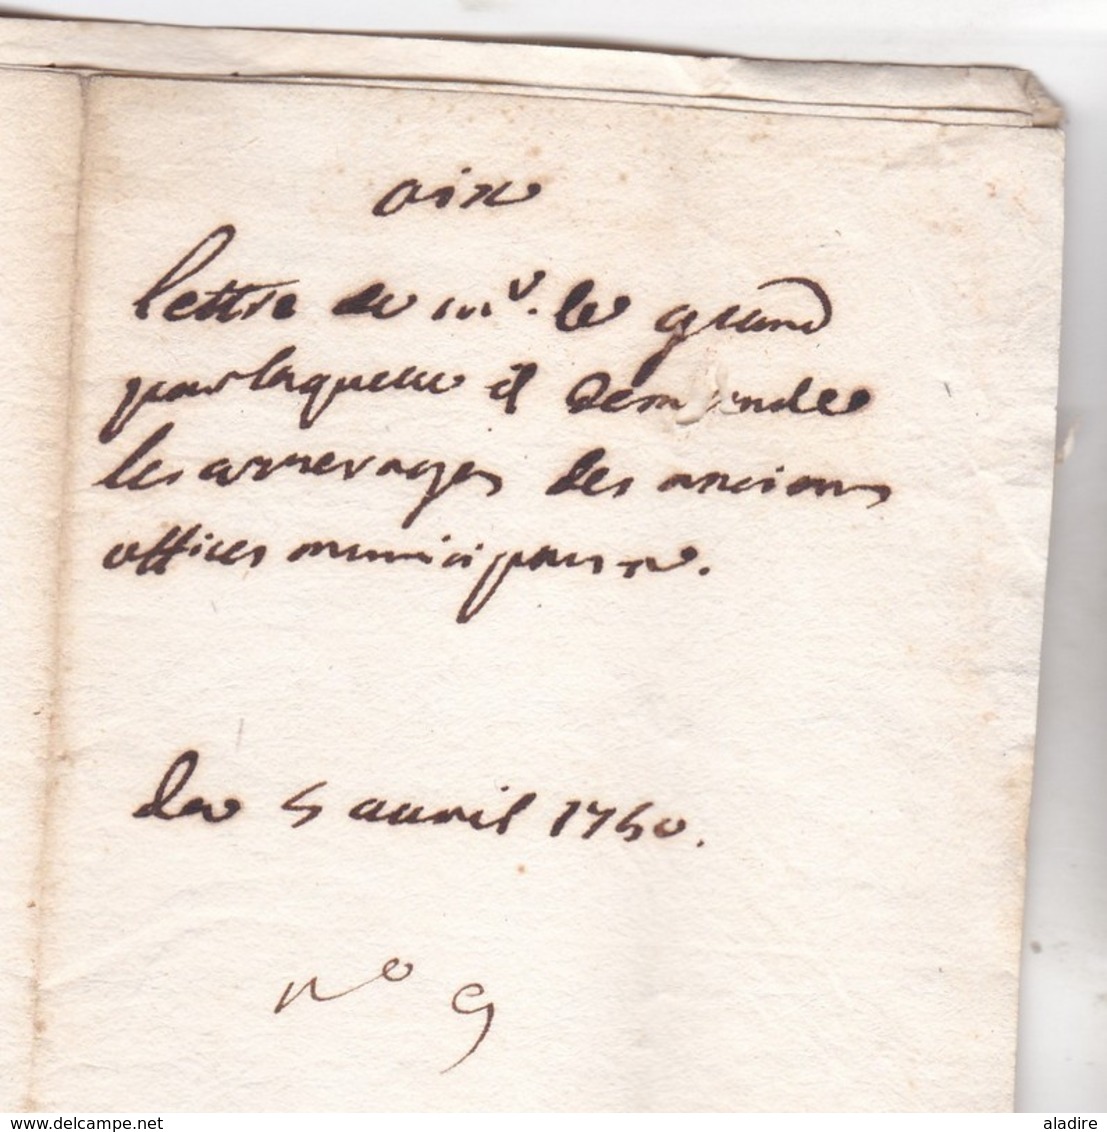 aix
lettre de mr. le grand
par laquelle il demande
les arrerages des anciens
offices municipaux.
du 5 avril 1750.
no 9
delcampe.net
aladire